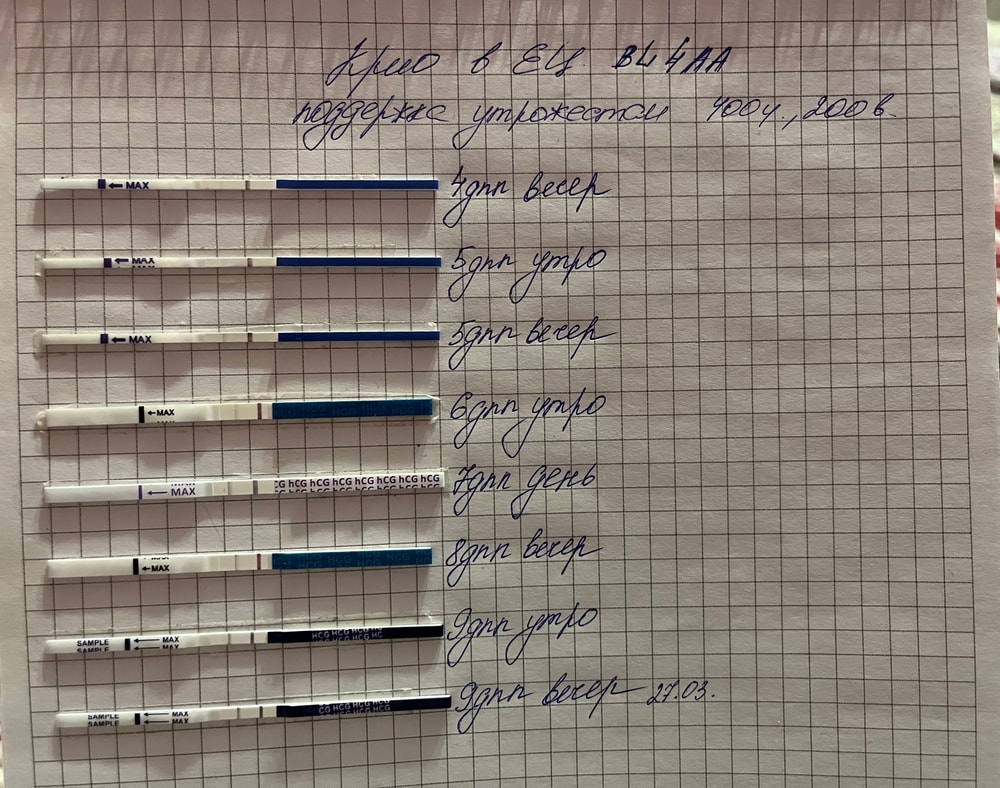 Крио в ЕЦ BL 4AA
поддержка утрожестом 400у., 200в.
MAX
4дпп вечер
MAX
5дпп утро
MAX
5дпп вечер
MAX
6дпп утро
MAX
CG hCG hCG hCG hCG hCG hCG hCG
7дпп день
MAX
8дпп вечер
SAMPLE MAX
SAMPLE MAX
HCG HCG HCG HC
9дпп утро
SAMPLE MAX
SAMPLE MAX
CG HCG HCG HCG
9дпп вечер 27.03.